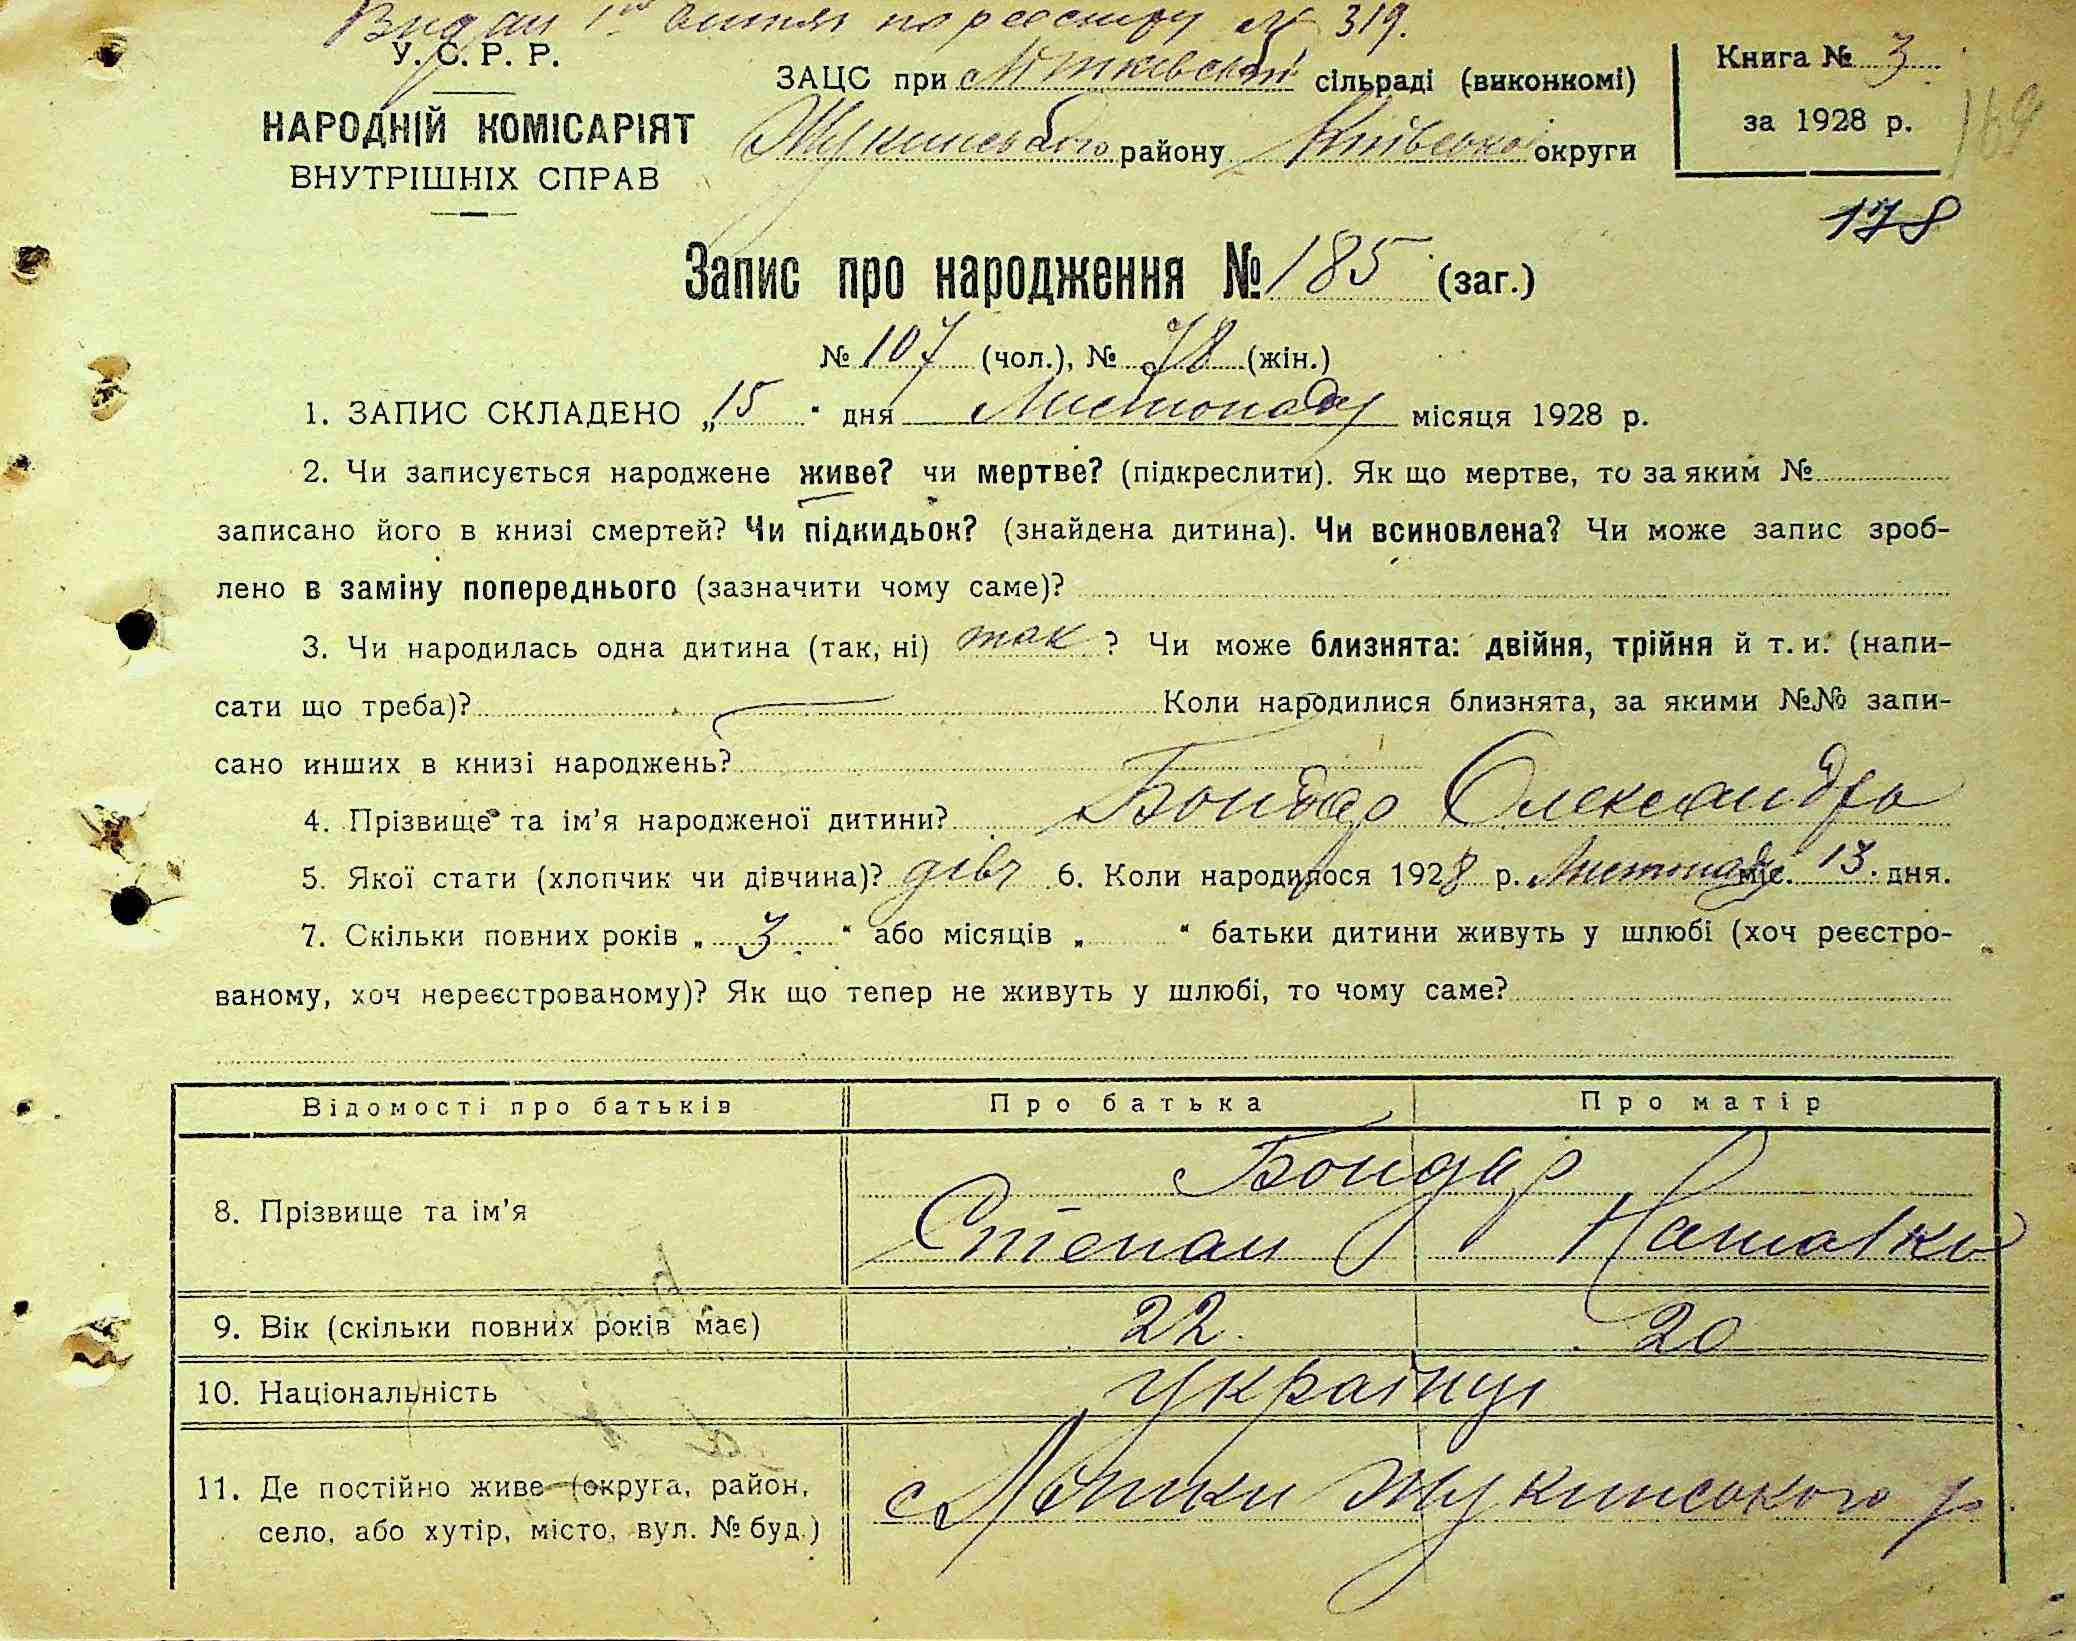 Видан 1ий витяг по реєстру № 319.
У. С. Р. Р.
НАРОДНІЙ КОМІСАРІЯТ
ВНУТРІШНІХ СПРАВ
ЗАЦС при Літківській сільраді (виконкомі)
Жукинського району Київської округи
Книга № 3
за 1928 р.
169
178
Запис про народження № 185 (заг.)
№ 107 (чол.), № 78 (жін.)
1. ЗАПИС СКЛАДЕНО „ 15 “ дня Листопаду місяця 1928 р.
2. Чи записується народжене живе? чи мертве? (підкреслити). Як що мертве, то за яким №
записано його в книзі смертей? Чи підкидьок? (знайдена дитина). Чи всиновлена? Чи може запис зроб-
лено в заміну попереднього (зазначити чому саме)?
3. Чи народилась одна дитина (так, ні) так ? Чи може близнята: двійня, трійня й т. и. (напи-
сати що треба)? Коли народилися близнята, за якими №№ запи-
сано инших в книзі народжень?
4. Прізвище та ім’я народженої дитини? Бондар Олександра
5. Якої стати (хлопчик чи дівчина)? дівч 6. Коли народилося 1928 р. Листопаду міс. 13. дня.
7. Скільки повних років „ 3 “ або місяців „ “ батьки дитини живуть у шлюбі (хоч реєстро-
ваному, хоч нереєстрованому)? Як що тепер не живуть у шлюбі, то чому саме?
Відомості про батьків Про батька Про матір
8. Прізвище та ім’я Бондар
Степан Наталка
9. Вік (скільки повних років має) 22. 20
10. Національність українці
11. Де постійно живе (округа, район, с Літки Жукинського р.
село, або хутір, місто, вул. № буд.)